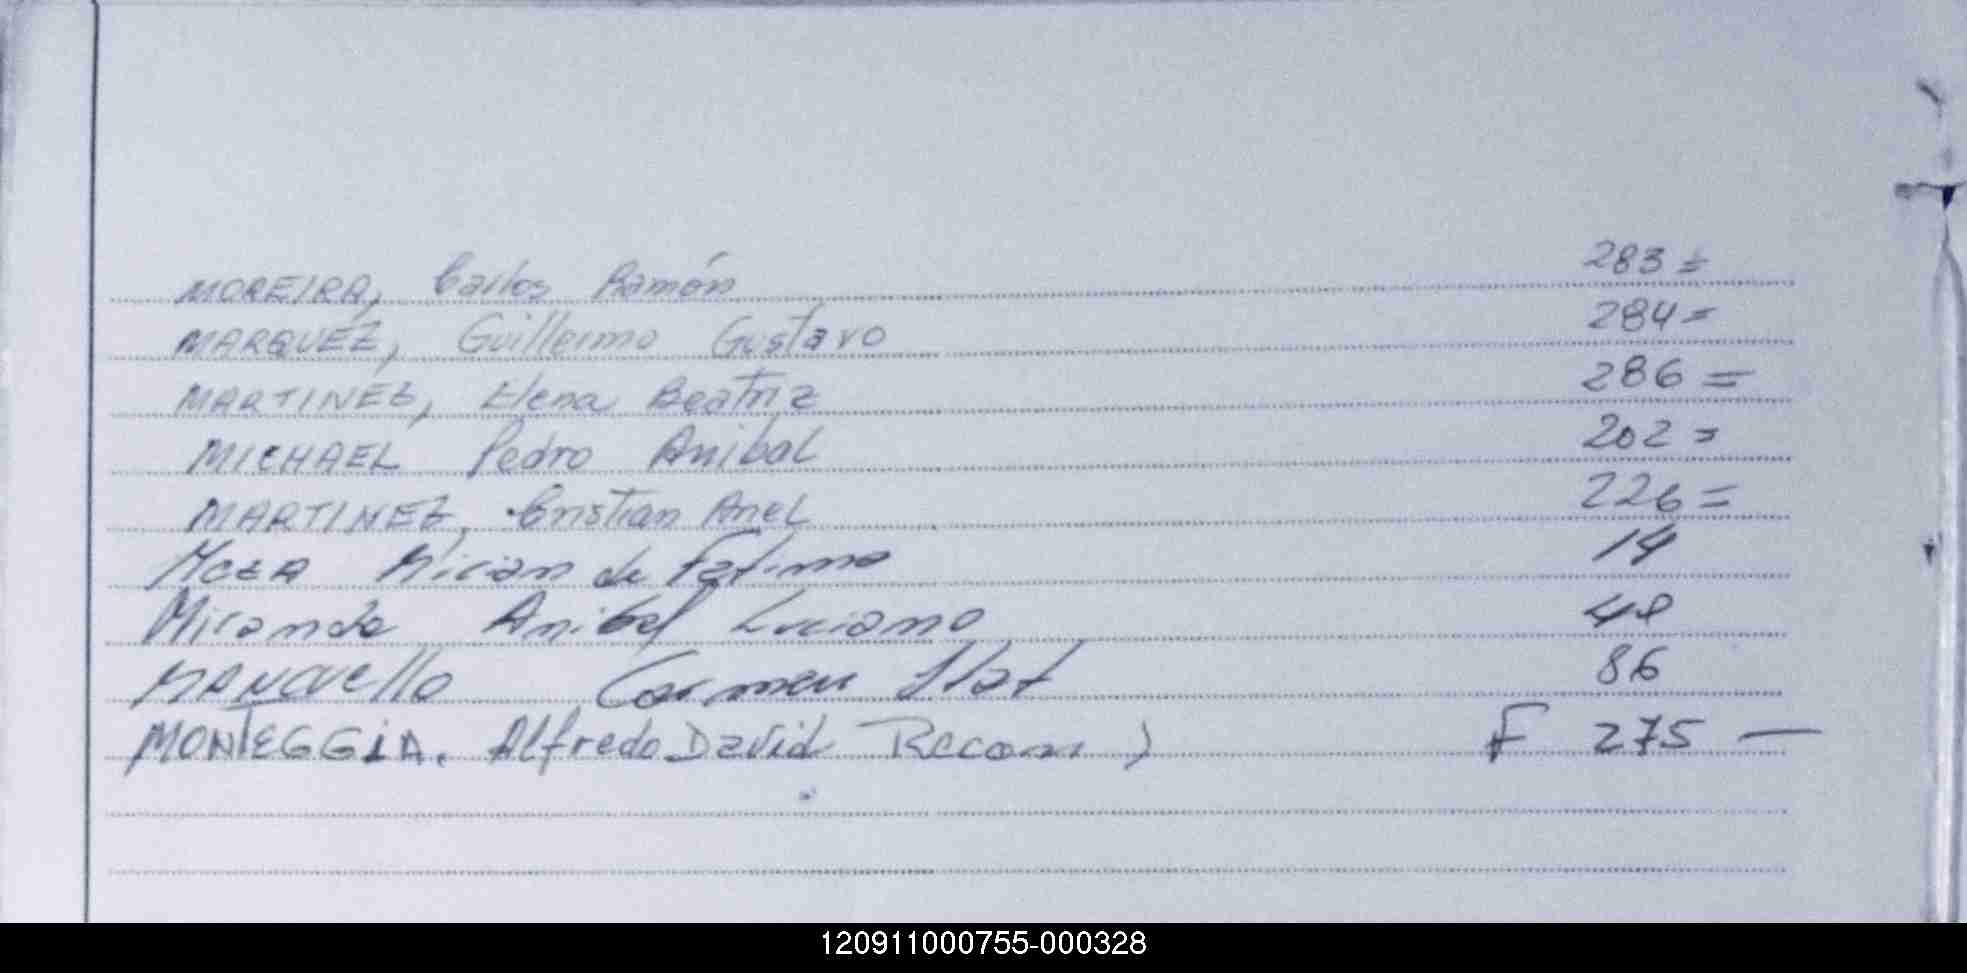 MOREIRA, Carlos Ramón 283=
MARQUEZ, Guillermo Gustavo 284=
MARTINEZ, Elena Beatriz 286=
MICHAEL Pedro Anibal 202=
MARTINEZ, Cristian Ariel 226=
Moza Mirian de Fatima 14
Miranda Anibal Luciano 48
MANAVELLO Carmen 86
MONTEGGIA. Alfredo David Recon ) F 275 —
120911000755-000328